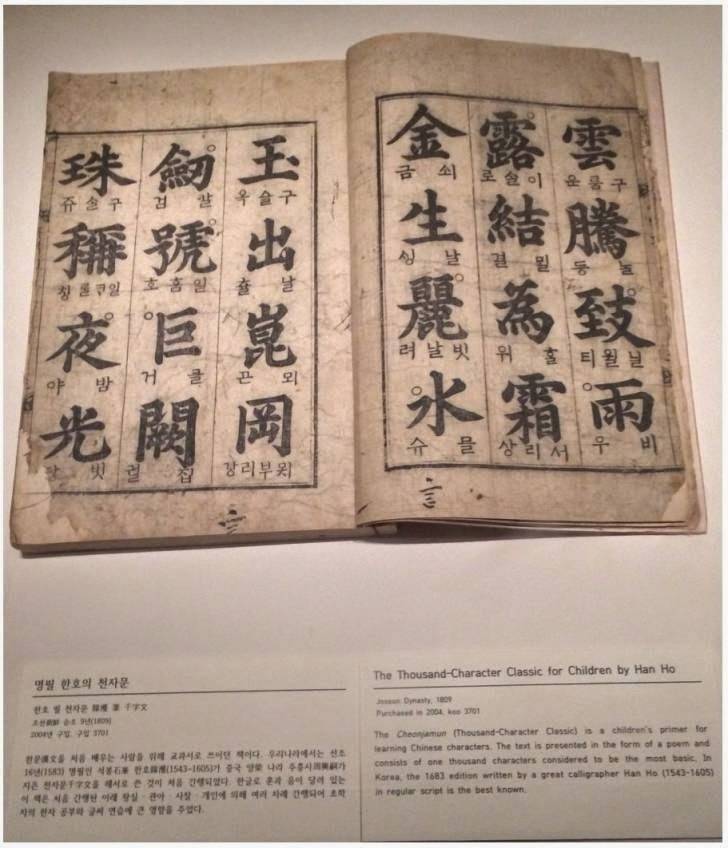 雲 구룸 운 騰 등 致 雨 비 우
露 이슬 로 結 결 為 위 霜 서리 상
金 쇠 금 生 날 麗 빗날 려 水 믈 슈
玉 구슬 옥 出 날 츌 崑 뫼 곤 岡
劒 검 號 일홈 호 巨 클 거 闕 집 궐
珠 구슬 쥬 稱 칭 夜 밤 야 光 빗
명필 한호의 천자문
한호 필 천자문 韓濩 筆 千字文
조선朝鮮 순조 9년(1809)
2004년 구입, 구입 3701
한문漢文을 처음 배우는 사람을 위해 교과서로 쓰이던 책이다. 우리나라에서는 선조
16년(1583) 명필인 석봉石峯 한호韓濩(1543-1605)가 중국 양梁 나라 주흥사周興嗣가
지은 천자문千字文을 해서로 쓴 것이 처음 간행되었다. 한글로 훈과 음이 달려 있는
이 책은 처음 간행된 이래 왕실·관아·사찰·개인에 의해 여러 차례 간행되어 초학
자의 한자 공부와 글씨 연습에 큰 영향을 주었다.
The Thousand-Character Classic for Children by Han Ho
Joseon Dynasty, 1809
Purchased in 2004, koo 3701
The Cheonjamun (Thousand-Character Classic) is a children's primer for
learning Chinese characters. The text is presented in the form of a poem and
consists of one thousand characters considered to be the most basic. In
Korea, the 1683 edition written by a great calligrapher Han Ho (1543-1605)
in regular script is the best known.